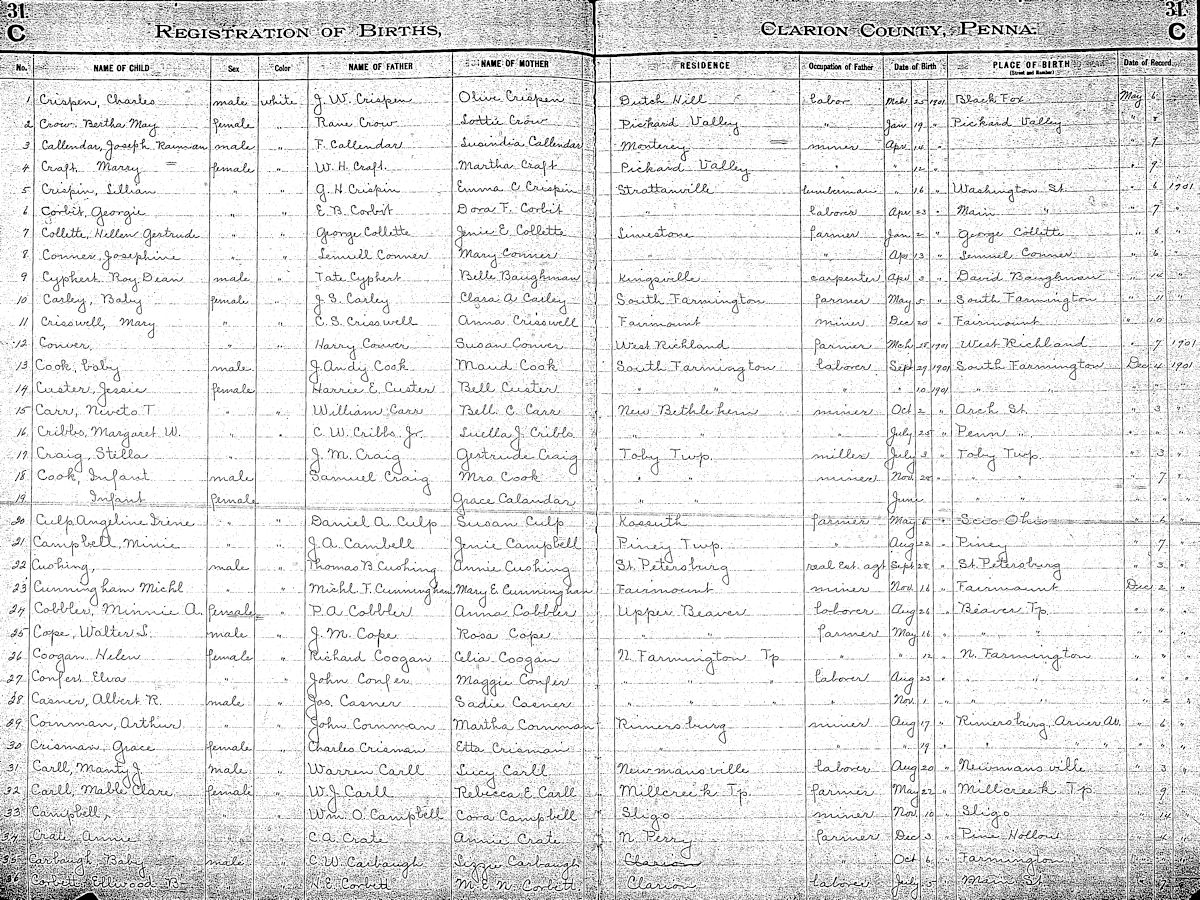 31 C REGISTRATION OF BIRTHS, CLARION COUNTY, PENNA. 31 C
No. NAME OF CHILD Sex Color NAME OF FATHER NAME OF MOTHER RESIDENCE Occupation of Father Date of Birth PLACE OF BIRTH (Street and Number) Date of Record
1 Crispen, Charles male white J. W. Crispen Olive Crispen Dutch Hill labor Mch 25 1901 Black Fox May 6 "
2 Crow Bertha May female " Rane Crow Lottie Crow Pickard Valley " Jan 19 " Pickard Valley " "
3 Callendar, Joseph male " F. Callendar Susindia Callendar Monterey miner Apr 14 " " 7 "
4 Craft Marry female " W. H. Craft Martha Craft Pickard Valley " " 12 " " 7 "
5 Crispin, Lillian " " G. H Crispin Emma C Crispin Strattanville lumberman " 16 " Washington St. " 6 1901
6 Corbit, Georgie " " E. B. Corbit Dora F. Corbit " laborer Apr 23 " Main " " 7 "
7 Collette, Hellen Gertrude " " George Collette Jenie E. Collette Limestone farmer Jan 2 " George Collette " 6 "
8 Conner, Josephine " " Lemuell Conner Mary Conner " " Apr 13 " Lemuel Conner " 6 "
9 Cyphert Roy Dean male " Tate Cyphert Belle Baughman Kingsville carpenter Apr 3 " David Baughman " 14 "
10 Carley, Baby female " J. S. Carley Clara A Carley South Farmington farmer May 5 " South Farmington " 11 "
11 Crisswell, Mary " " C. S. Crisswell Anna Crisswell Fairmount miner Dec 20 " Fairmount " 10 "
12 Conver, " " Harry Conver Susan Conver West Richland farmer Mch 28 1901 West Richland " 7 1901
13 Cook, baby male " J. Andy Cook Maud Cook South Farmington laborer Sept 29 1901 South Farmington Dec 4 1901
14 Custer, Jessie female " Harrie E. Custer Bell Custer " " " " 10 1901 " " " "
15 Carr, Niveto T. " " William Carr Bell. C. Carr New Bethlehem miner Oct 2 " Arch St. " 3 "
16 Cribbs, Margaret W. " " C. W. Cribbs Jr. Luella J. Cribbs " " July 25 " Penn " " " "
17 Craig, Stella " " J. M. Craig Gertrude Craig Toby Twp. miller July 3 " Toby Twp. " 3 "
18 Cook, Infant male " Samuel Craig Mrs Cook " " miner Nov. 28 " " " " 7 "
19 Infant female Grace Calandar " " June " "
20 Culp Angeline Irene " " Daniel A. Culp Susan Culp Kossuth farmer May 6 " Scio Ohio " 6 "
21 Campbell, Minie " " J. A. Cambell Jenie Campbell Piney Twp. " Aug 22 " Piney " 7 "
22 Cushing, male " Thomas B Cushing Annie Cushing St. Petersburg real Est. agt Sept 28 " St. Petersburg " 3 "
23 Cunningham Michl " " Michl. F. Cunningham Mary E. Cunningham Fairmount miner Nov. 16 " Fairmount Dec 2 "
24 Cobbler, Minnie A. female " P. A. Cobbler Anna Cobbler Upper Beaver laborer Aug 26 " Beaver Tp. " " "
25 Cope, Walter S. male " J. M. Cope Rosa Cope " " farmer May 16 " " " " " "
26 Coogan Helen female " Richard Coogan Celia Coogan N. Farmington Tp " " 12 " N. Farmington " " "
27 Confer Elva " " John Confer Maggie Confer " " " laborer Aug 23 " " " " " "
28 Casner, Albert R. male " Jas. Casner Sadie Casner " " " " Nov. 1 " " " " 2 "
29 Cornman, Arthur " " John Cornman Martha Cornman Rimersburg miner Aug 17 " Rimersburg, " 6 "
30 Crisman, Grace female " Charles Crisman Etta Crisman " " " 19 " " " " " "
31 Carll, Manty J. male " Warren Carll Lucy Carll Newmansville laborer Aug 20 " Newmansville " 3 "
32 Carll, Mable Clare female " W. J. Carll Rebecca E. Carll Millcreek Tp. farmer May 22 " Millcreek Tp. " 9 "
33 Campbell, " " Wm. O. Campbell Cora Campbell Sligo miner Nov. 10 " Sligo " 14 "
34 Crate, Annie " " C. A. Crate Annie Crate N. Perry Farmer Dec 3 " Pine Hollow " 4 "
35 Carbaugh Baby male " C. W. Carbaugh Lizzie Carbaugh Clarion " Oct 6 " Farmington " "
36 Corbett, Ellwood B. " " H. E. Corbett M. E. N. Corbett Clarion laborer July 5 " Main St. " 7 "